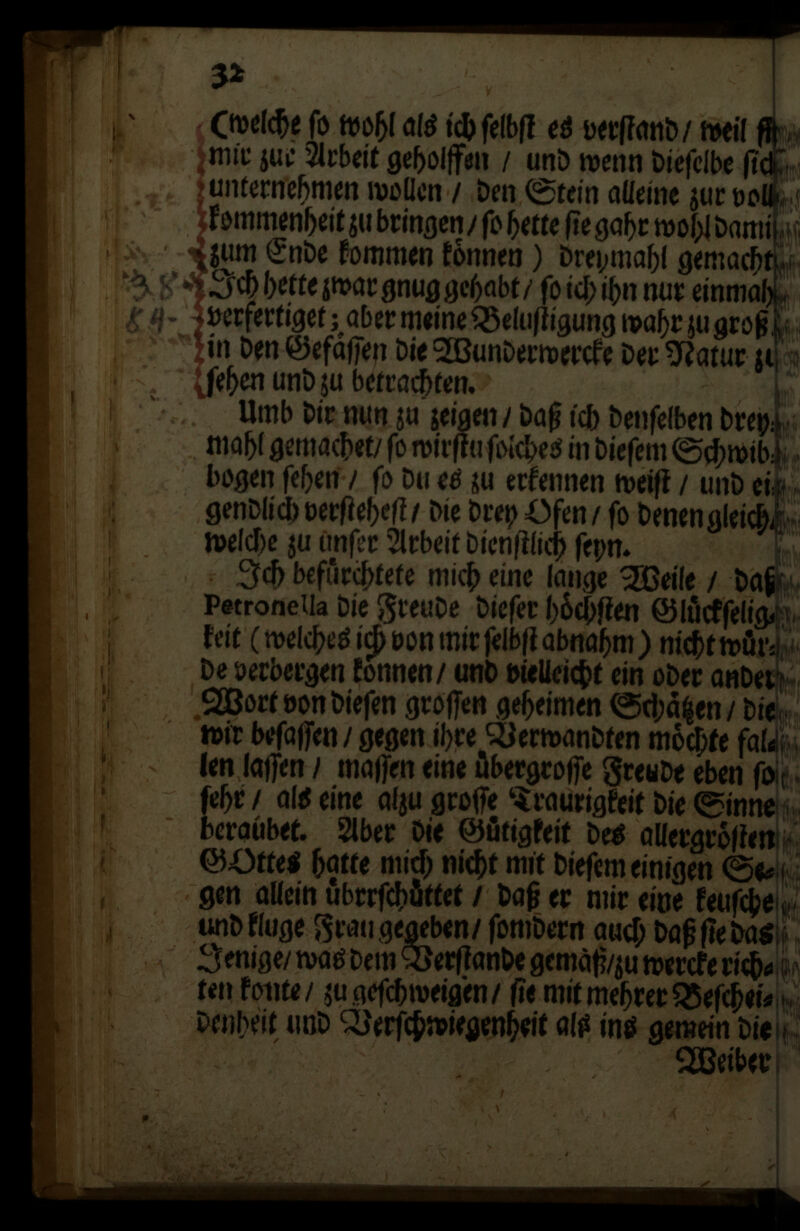 32
(welche ſo wohl als ich ſelbſt es verſtand / weil
mir zur Arbeit geholffen / und wenn dieſelbe ſich
unternehmen wollen / den Stein alleine zur voll
kommenheit zu bringen / ſo hette ſie gahr wohl damit
zum Ende kommen koͤnnen ) dreymahl gemacht
Ich hette zwar gnug gehabt / ſo ich ihn nur einmahl
verfertiget ; aber meine Beluſtigung wahr zu groß
in den Gefaͤſſen die Wunderwercke der Natur zu
ſehen und zu betrachten.
Umb dir nun zu zeigen / daß ich denſelben drey-
mahl gemachet / ſo wirſtu ſolches in dieſem Schwib-
bogen ſehen / ſo du es zu erkennen weiſt / und ei-
gendlich verſteheſt / die drey Ofen / ſo denen gleich /
welche zu unſer Arbeit dienſtlich ſeyn.
Ich befuͤrchtete mich eine lange Weile / daß
Petronella die Freude dieſer hoͤchſten Gluͤckſelig-
keit ( welches ich von mir ſelbſt abnahm ) nicht wuͤr-
de verbergen koͤnnen / und vielleicht ein oder ander
Wort von dieſen groſſen geheimen Schaͤtzen / die
wir beſaſſen / gegen ihre Verwandten moͤchte fal-
len laſſen / maſſen eine uͤbergroſſe Freude eben ſo
ſehr / als eine alzu groſſe Traurigkeit die Sinne
beraubet. Aber die Guͤtigkeit des allergroͤſten
GOttes hatte mich nicht mit dieſem einigen Se-
gen allein uͤbrrſchuͤttet / daß er mir eine keuſche
und kluge Frau gegeben / ſomdern auch daß ſie das
Jenige / was dem Verſtande gemaͤß / zu wercke rich-
ten konte / zu geſchweigen / ſie mit mehrer Beſchei-
denheit und Verſchwiegenheit als ins gemein die
Weiber